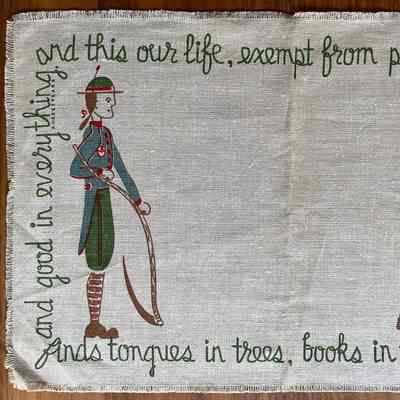 and this our life, exempt from p
finds tongues in trees, books in
and good in everything